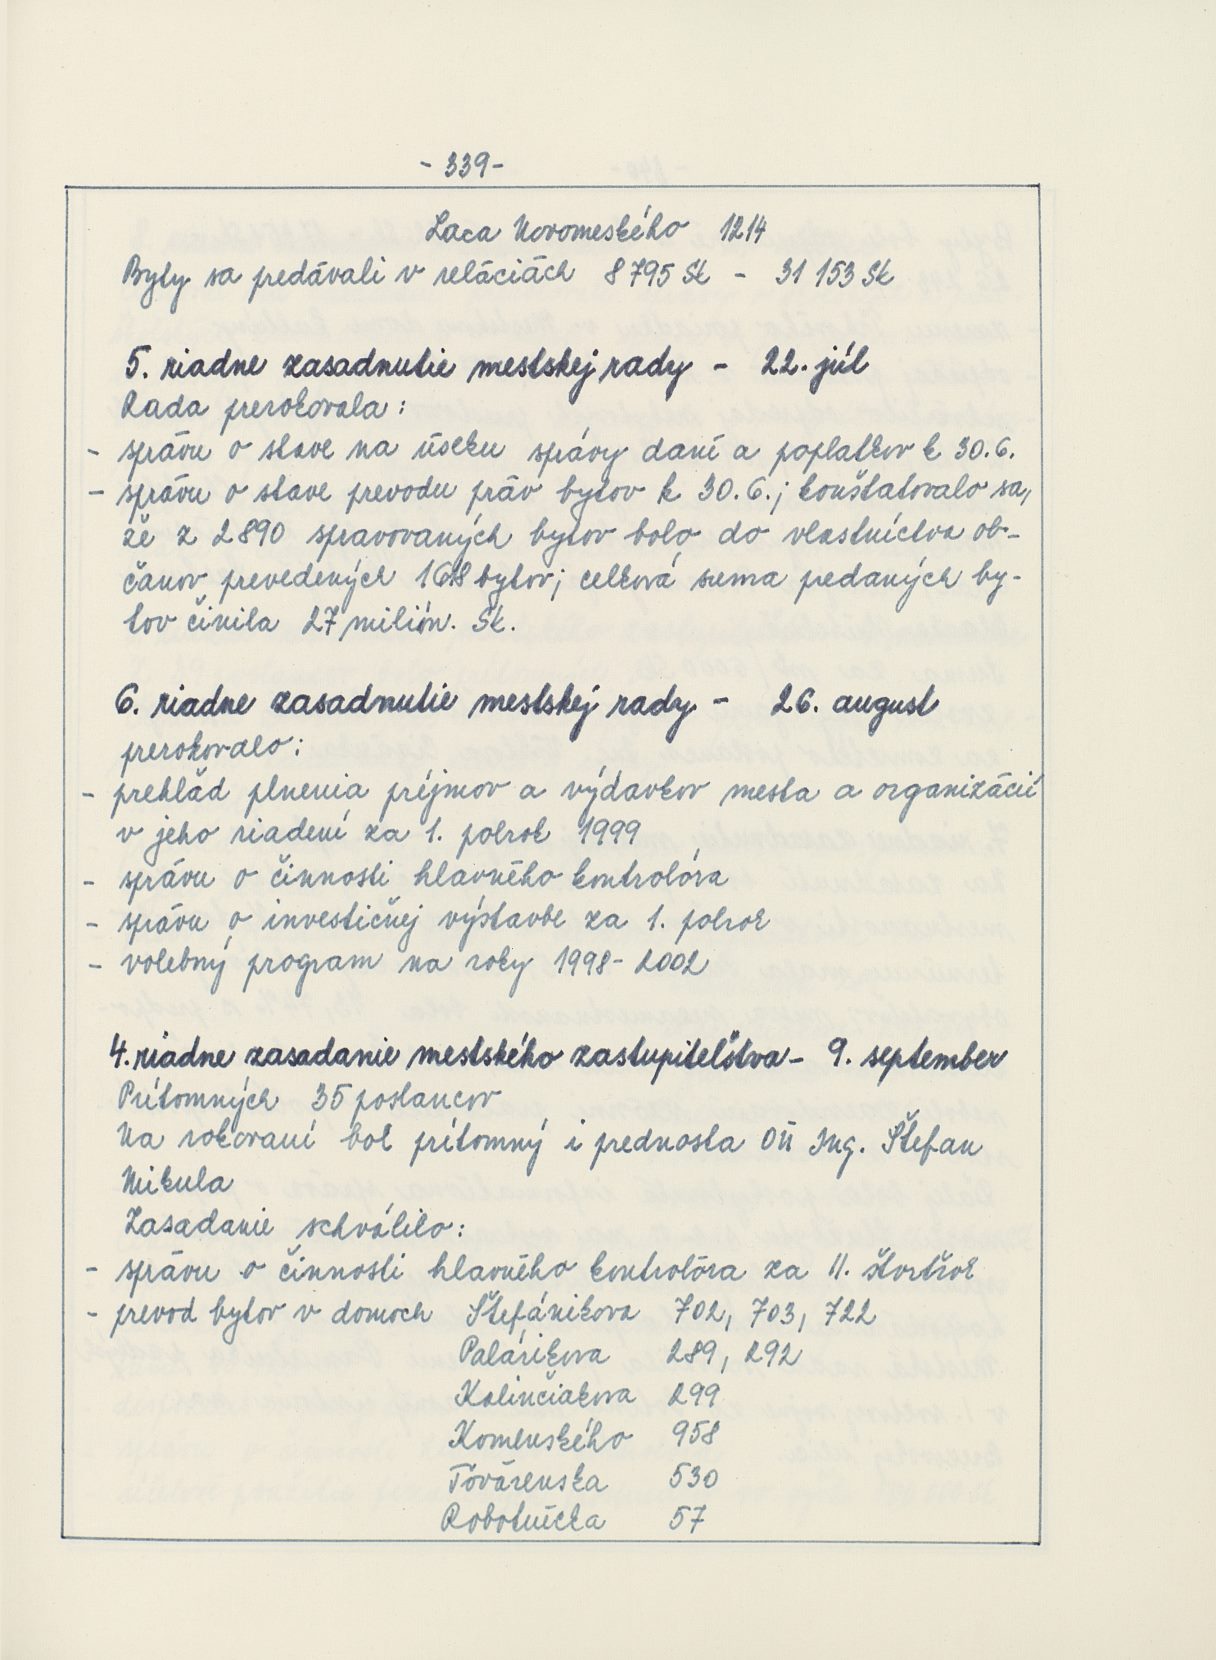 - 339 -
Laca Novomeského 1214
Byty sa predávali v reláciách 8 795 Sk - 31 153 Sk
5. riadne zasadnutie mestskej rady - 22. júl
Rada prerokovala:
- správu o stave na úseku správy daní a poplatkov k 30.6.
- správu o stave prevodu práv bytov k 30.6.; konštatovalo sa,
že z 2 890 spravovaných bytov bolo do vlastníctva ob-
čanov prevedených 168 bytov; celková suma predaných by-
tov činila 27 milión. Sk.
6. riadne zasadnutie mestskej rady - 26. august
prerokovalo:
- prehľad plnenia príjmov a výdavkov mesta a organizácií
v jeho riadení za 1. polrok 1999
- správu o činnosti hlavného kontrolóra
- správu o investičnej výstavbe za 1. polrok
- volebný program na roky 1998-2002
4. riadne zasadanie mestského zastupiteľstva - 9. september
Prítomných 35 poslancov
Na rokovaní bol prítomný i prednosta OÚ Ing. Štefan
Mikula
Zasadanie schválilo:
- správu o činnosti hlavného kontrolóra za II. štvrťrok
- prevod bytov v domoch Štefánikova 702, 703, 722
Palárikova 289, 292
Kalinčiakova 299
Komenského 958
Továrenska 530
Robotnícka 57